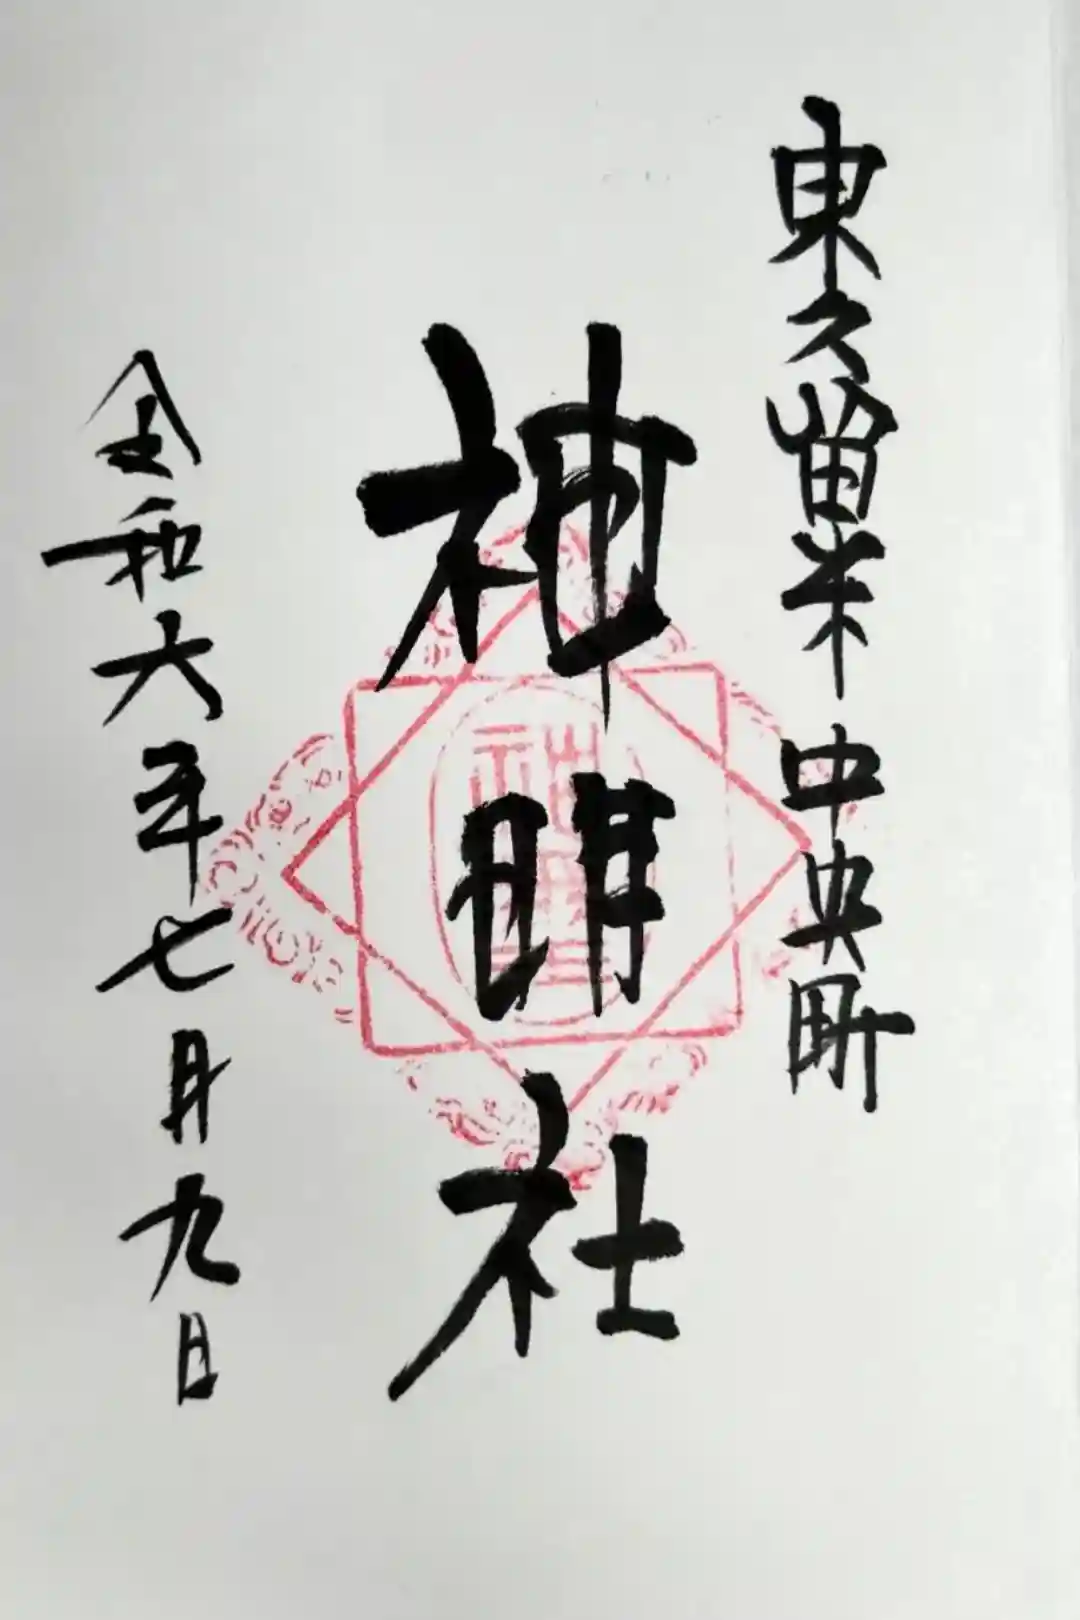 東久留米中央町
神明社
令和六年七月九日